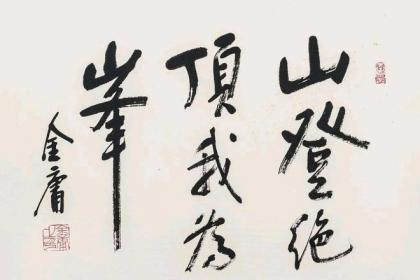 山登绝
頂我為
峯
金庸